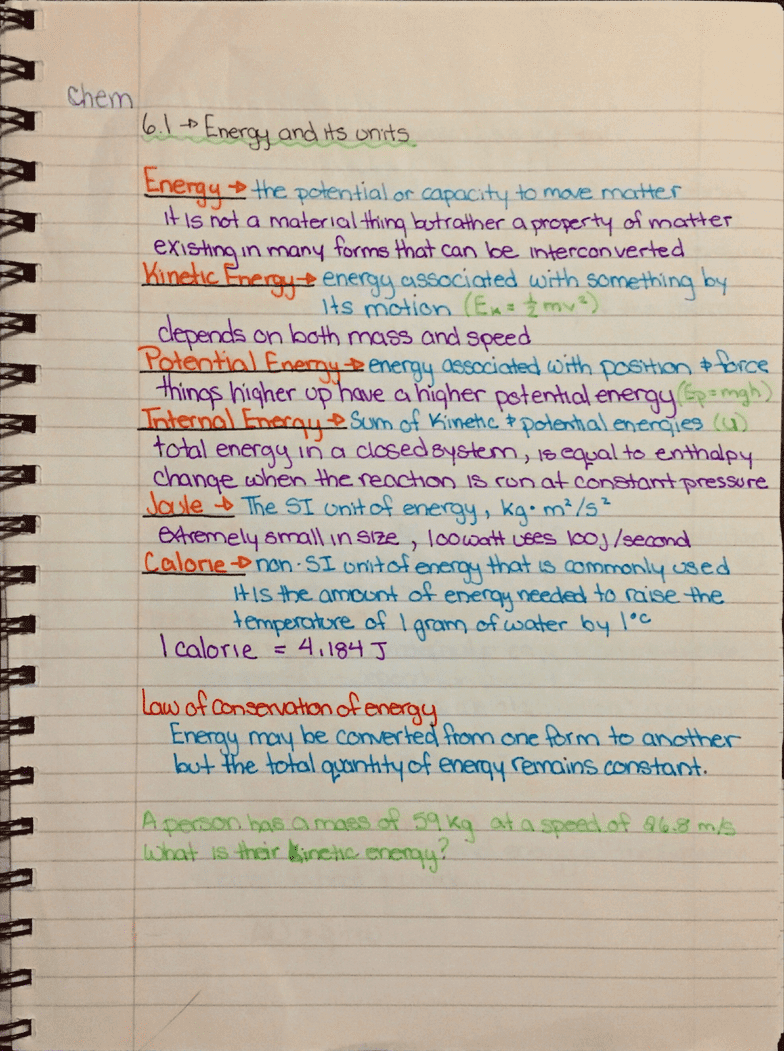 Chem
6.1 → Energy and its units
Energy → the potential or capacity to move matter
it is not a material thing but rather a property of matter
existing in many forms that can be interconverted
Kinetic Energy → energy associated with something by
its motion (Eₖ = ½mv²)
depends on both mass and speed
Potential Energy → energy associated with position & force
things higher up have a higher potential energy (Ep = mgh)
Internal Energy → Sum of kinetic & potential energies (U)
total energy in a closed system, is equal to enthalpy
change when the reaction is run at constant pressure
Joule → The SI unit of energy, kg · m²/s²
extremely small in size, 100 watt uses 100 J/second
Calorie → non-SI unit of energy that is commonly used
it is the amount of energy needed to raise the
temperature of 1 gram of water by 1°C
1 calorie = 4.184 J
Law of conservation of energy
Energy may be converted from one form to another
but the total quantity of energy remains constant.
A person has a mass of 59 kg at a speed of m/s
What is their kinetic energy?